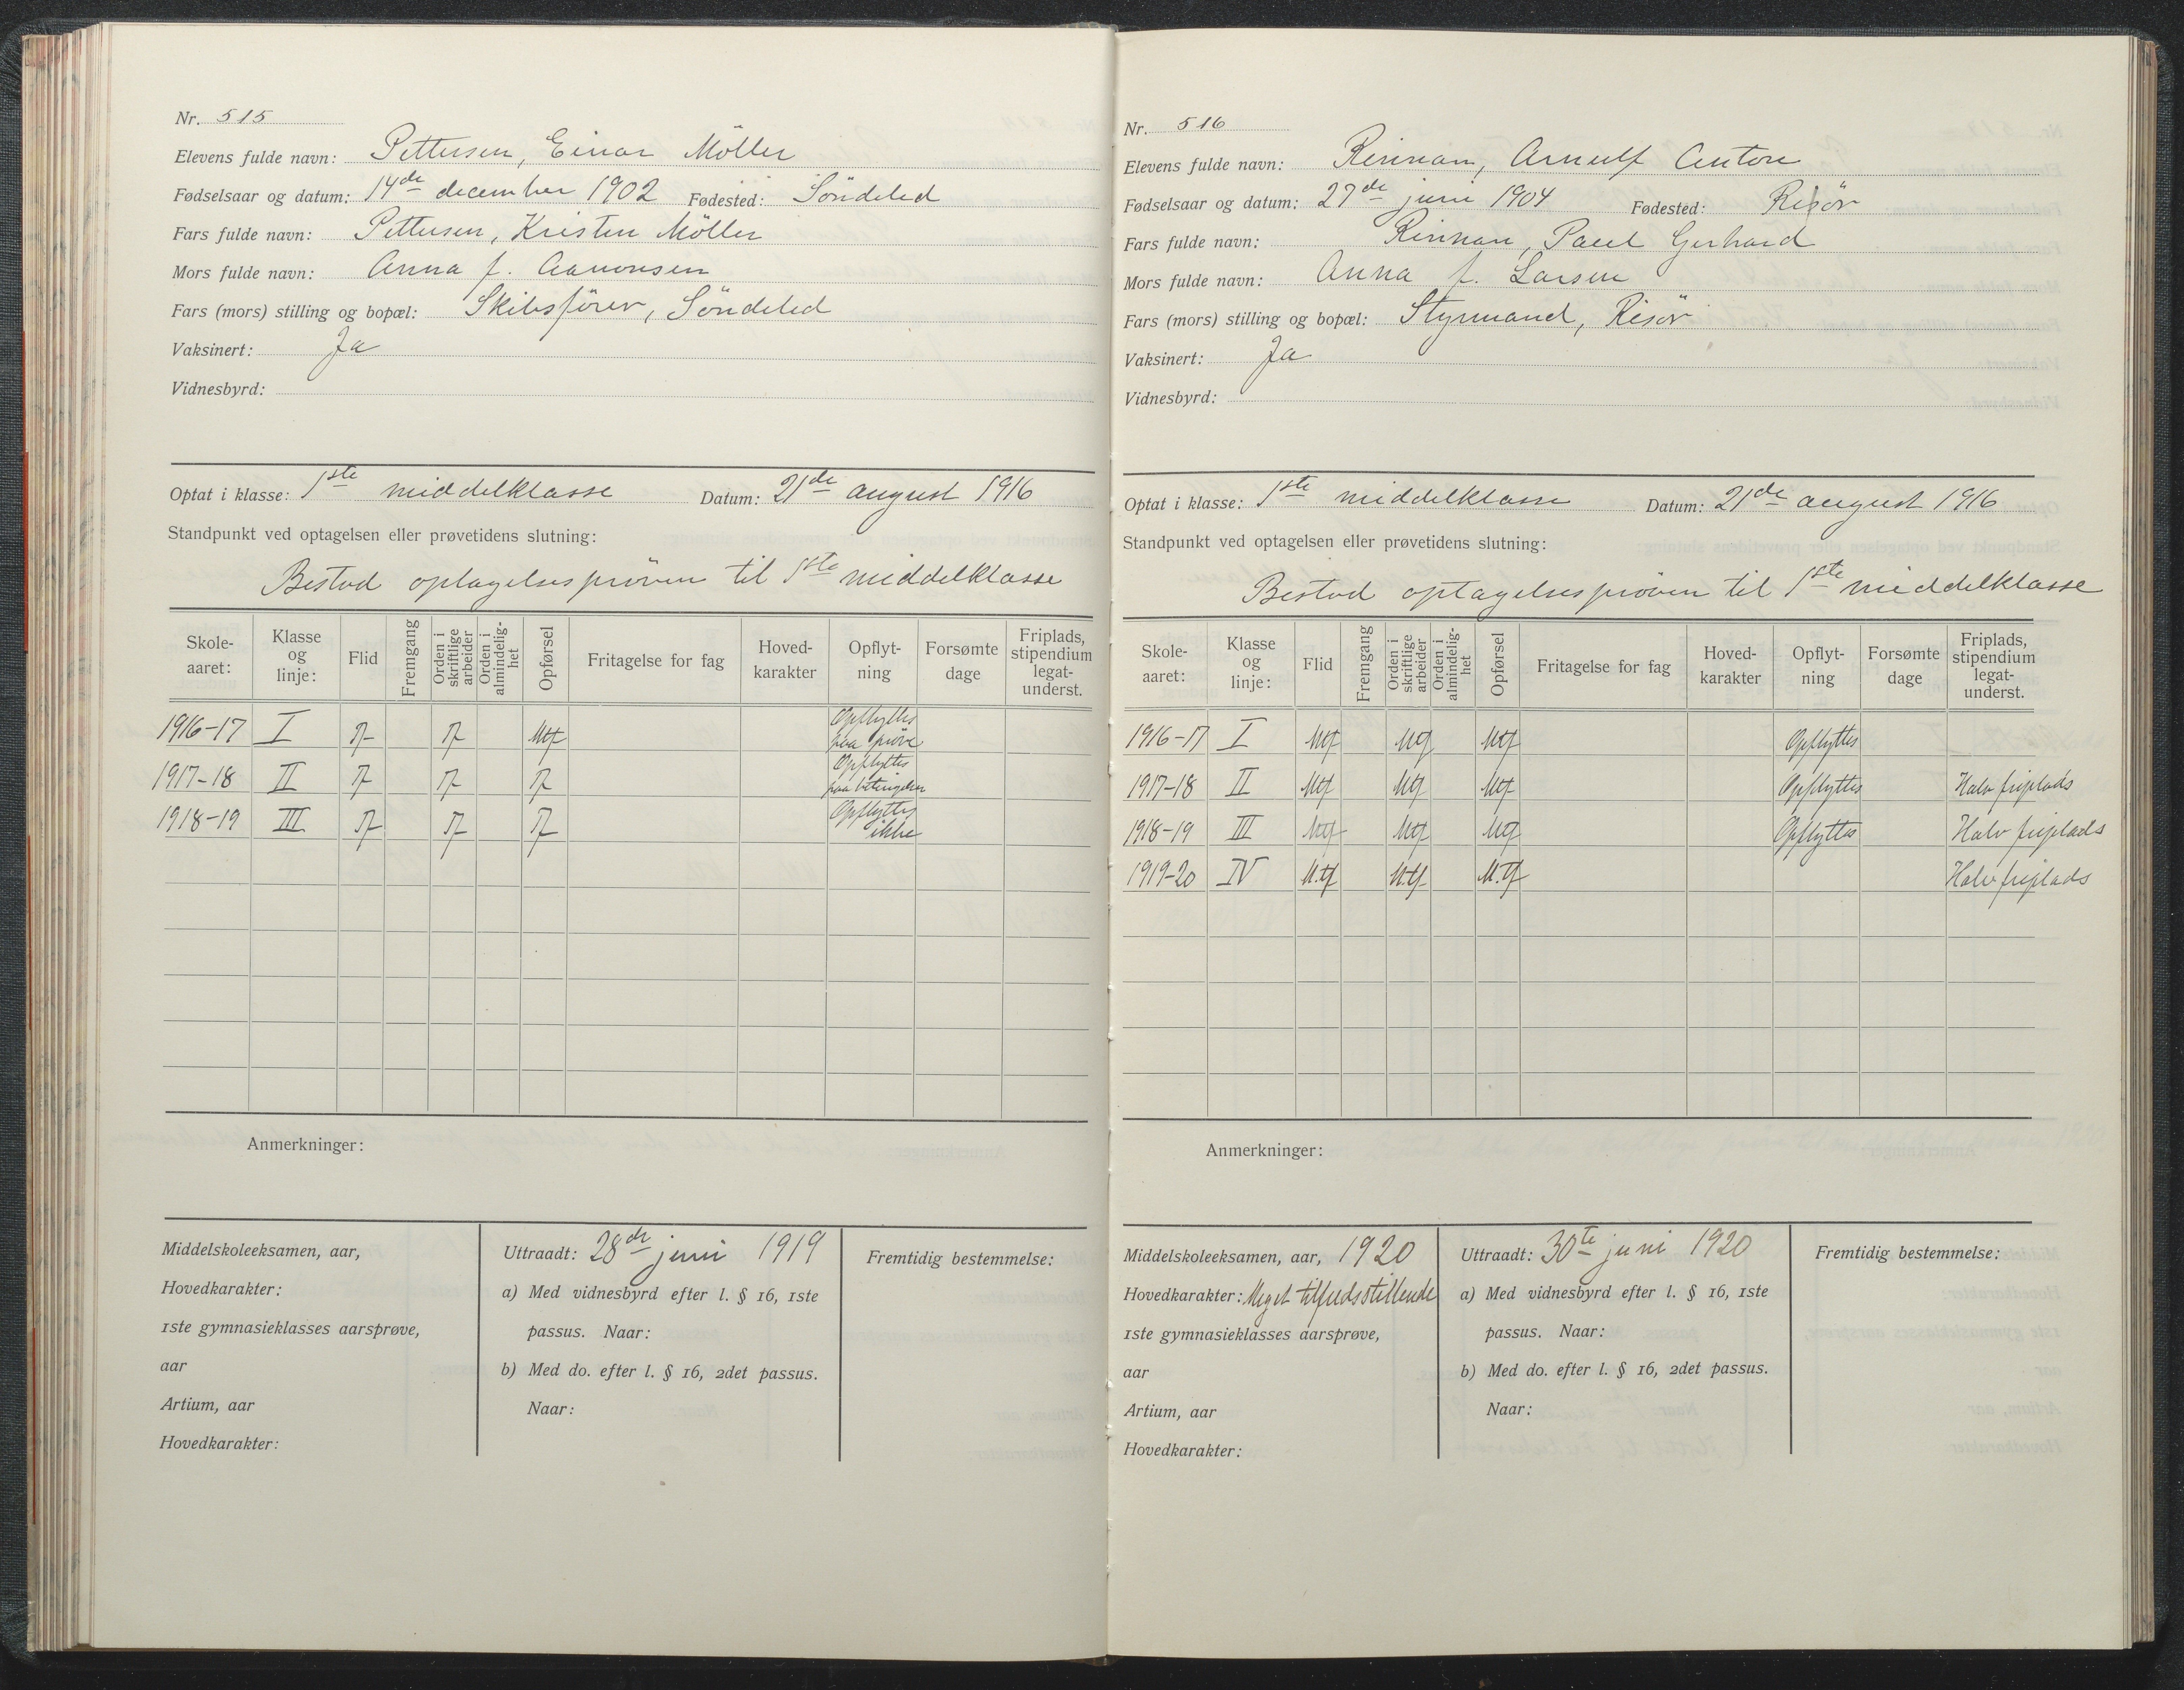 Nr. 515
Elevens fulde navn: Pettersen, Einar Möller
Fødselsaar og datum: 14de december 1902 Fødested: Söndeled
Fars fulde navn: Pettersen, Kristen Möller
Mors fulde navn: Anna f. Aanonsen
Fars (mors) stilling og bopæl: Skibsförer, Söndeled
Vaksinert: Ja
Vidnesbyrd:
Optat i klasse: 1ste middelklasse Datum: 21de august 1916
Standpunkt ved optagelsen eller prøvetidens slutning:
Bestod optagelsesprøven til 1ste middelklasse
Skole-aaret: Klasse og linje: Flid Fremgang Orden i skriftlige arbeider Orden i almindelig-het Opførsel Fritagelse for fag Hoved-karakter Opflyt-ning Forsømte dage Friplads, stipendium legat-underst.
1916-17 I Tf Tf Mtf Opflyttes paa prøve
1917-18 II Tf Tf Tf Opflyttes paa betingelser
1918-19 III Tf Tf Tf Opflyttes ikke
Anmerkninger:
Middelskoleeksamen, aar,
Hovedkarakter:
1ste gymnasieklasses aarsprøve,
aar
Artium, aar
Hovedkarakter:
Uttraadt: 28de juni 1919
a) Med vidnesbyrd efter l. § 16, 1ste
passus. Naar:
b) Med do. efter l. § 16, 2det passus.
Naar:
Fremtidig bestemmelse:
Nr. 516
Elevens fulde navn: Rinnan, Arnulf Anton
Fødselsaar og datum: 27de juni 1904 Fødested: Risör
Fars fulde navn: Rinnan, Paul Gerhard
Mors fulde navn: Anna f. Larsen
Fars (mors) stilling og bopæl: Styrmand, Risör
Vaksinert: Ja
Vidnesbyrd:
Optat i klasse: 1ste middelklasse Datum: 21de august 1916
Standpunkt ved optagelsen eller prøvetidens slutning:
Bestod optagelsesprøven til 1ste middelklasse
Skole-aaret: Klasse og linje: Flid Fremgang Orden i skriftlige arbeider Orden i almindelig-het Opførsel Fritagelse for fag Hoved-karakter Opflyt-ning Forsømte dage Friplads, stipendium legat-underst.
1916-17 I Mtf Mtf Mtf Opflyttes
1917-18 II Mtf Mtf Mtf Opflyttes Halv friplads
1918-19 III Mtf Mtf Mtf Opflyttes Halv friplads
1919-20 IV M.tf M.tf M.Tf Halv friplads
Anmerkninger:
Middelskoleeksamen, aar, 1920
Hovedkarakter: Meget tilfredsstillende
1ste gymnasieklasses aarsprøve,
aar
Artium, aar
Hovedkarakter:
Uttraadt: 30te juni 1920
a) Med vidnesbyrd efter l. § 16, 1ste
passus. Naar:
b) Med do. efter l. § 16, 2det passus.
Naar:
Fremtidig bestemmelse: